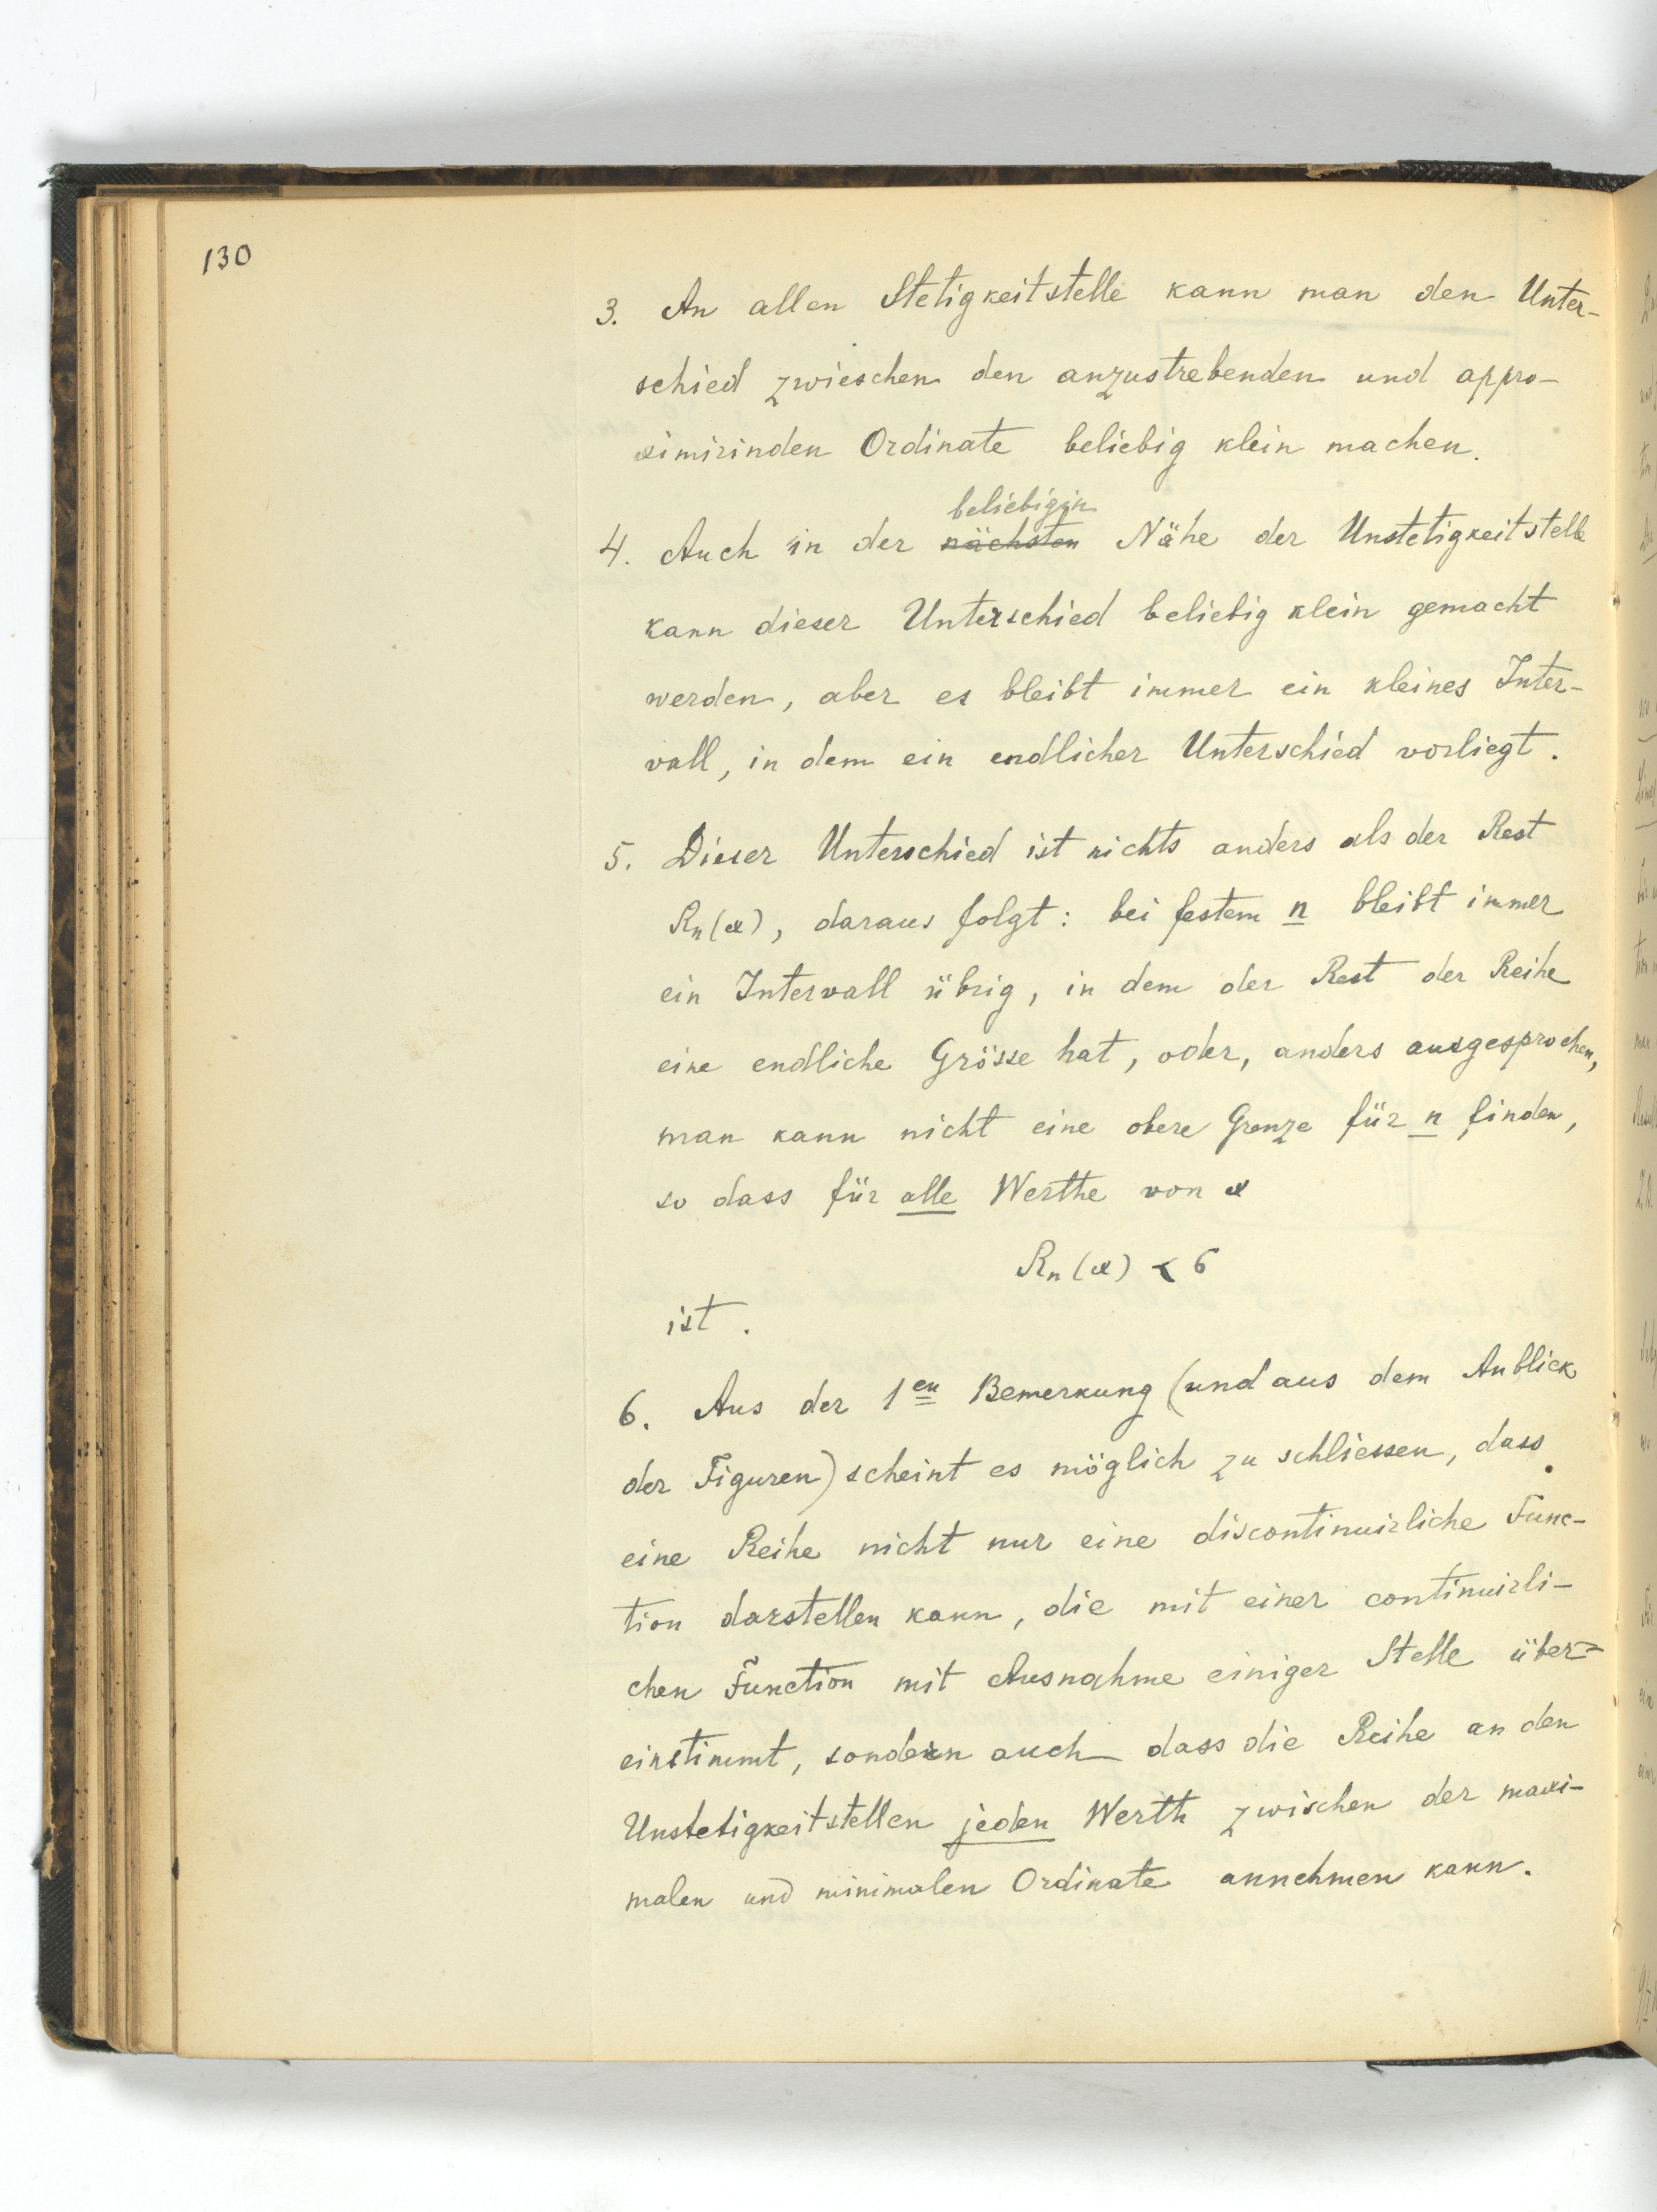 130
3. An allen Stetigkeitstelle kann man den Unter-
schied zwieschen den anzustrebenden und appro-
ximirinden Ordinate beliebig klein machen.
beliebigin
4. Auch in der nächsten Nähe der Unstetigkeitstelle
kann dieser Unterschied beliebig klein gemacht
werden, aber es bleibt immer ein kleines Inter-
vall, in dem ein endlicher Unterschied vorliegt.
5. Dieser Unterschied ist nichts anders als der Rest
Rn(x), daraus folgt: bei festem n bleibt immer
ein Intervall übrig, in dem der Rest der Reihe
eine endliche Grösse hat, oder, anders ausgesprochen,
man kann nicht eine obere Grenze für n finden,
so dass für alle Werthe von x
Rn(x) < σ
ist.
6. Aus der 1en Bemerkung (und aus dem Anblick
der Figuren) scheint es möglich zu schliessen, dass
eine Reihe nicht nur eine discontinuirliche Func-
tion darstellen kann, die mit einer continuirli-
chen Function mit Ausnahme einiger Stelle über-
einstimmt, sondern auch dass die Reihe an den
Unstetigkeitstellen jeden Werth zwischen der maxi-
malen und minimalen Ordinate annehmen kann.